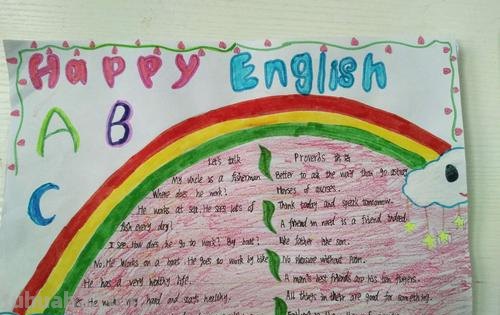 Happy English
A B
C
Let's talk
My uncle is a fisherman.
Where does he work?
He works at sea. He sees lots of
fish every day!
I see. How does he go to work? By boat?
No. He works on a boat. He goes to work by bike.
He has a very healthy life.
He work very hard and stays healthy.
Proverbs 谚语
Better to ask the way than go astray
Think today and speak tomorrow.
A friend in need is a friend indeed.
like father like son.
No pleasure without pain.
A man's best friends are his ten fingers.
All things in their are good for something.